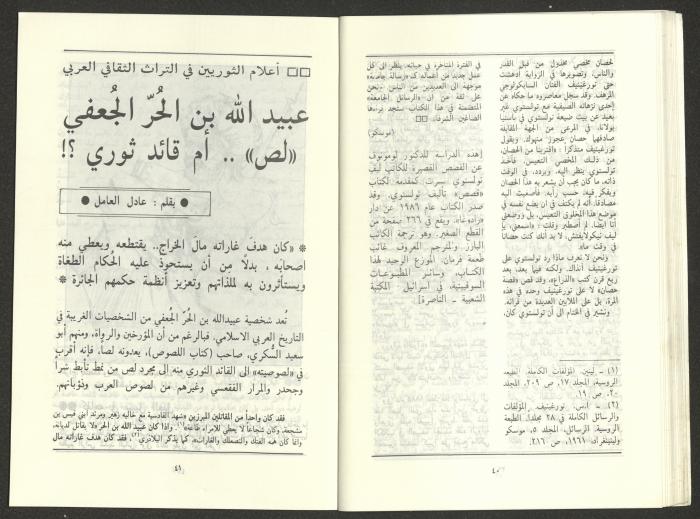 لحصان مخصي مخذول من قبل القدر
والناس، وتصويرها في الرواية أدهشت
حتى تورغينيف الفنان السايكولوجي
المرهف. وقد سجل معاصروه ما حكاه عن
إحدى نزهاته الصيفية مع تولستوي غير
بعيد عن بيت ضيعة تولستوي في ياسنيا
بولانا. في المرعى من الجهة المقابلة
صادفها حصان عجوز منهوك. ويقول
تورغينيف متذكرا: «اقتربنا من الحصان،
من ذلك المخصي التعيس، فأخذ
تولستوي ينظر اليه، ويردد، في الوقت
ذاته، ما كان يجب أن يشعر به هذا الحصان
ويفكر فيه، حسب رأيه. فأصغيت اليه
مصادقا. أنه لم يكتف في ان يضع نفسه في
موضع هذا المخلوق التعيس، بل ووضعني
أنا أيضا. لم أصطبر وقلت: «اسمعني، يا
ليف نيكولايفتش، لا بد انك كنت حصانا
في وقت ما».
ونحن لا نعرف ماذا رد تولستوي على
تورغينيف آنذاك. ولكنه فيما بعد، بعد
ربع قرن كتب «الذراع». وقد قص «قصة
حصان» لا على تورغينيف وحده في هذه
المرة، بل على الملايين العديدة من قرائه.
ونشير في الختام الى أن تولستوي كان،
(١) - لينين. المؤلفات الكاملة. الطبعة
الروسية، المجلد ١٧، ص ٢٠٩، المجلد
٢٠، ص ١٩.
(٢) - أ.س. تورغينيف. المؤلفات
والرسائل الكاملة في ٢٨ مجلدا. الطبعة
الروسية. الرسائل، المجلد ٥، موسكو
ولينينغراد، ١٩٦١، ص ٢١٦.
في الفترة المتأخرة في حياته، ينظر الى كل
عمل جديد من أعماله كـ «رسالة جامعة»
موجهة الى العديدين من الناس. ونحن
على ثقة من أن «الرسائل الجامعة»
المتضمنة في هذا الكتاب ستجد قراءها
الصالحين الشرفاء. □□
(موسكو)
[هذه الدراسة للدكتور لومونوف
عن القصص القصيرة للكاتب ليف
تولستوي نشرت كمقدمة لكتاب
«قصص» تأليف تولستوي. وقد
صدر الكتاب عام ١٩٨٦ عن دار
«رادوغا»، ويقع في ٢٦٦ صفحة من
القطع الصغير. وهو ترجمة الكاتب
البارز والمترجم المعروف غائب
طعمة فرمان. الموزع الوحيد لهذا
الكتاب، وسائر المطبوعات
السوفيتية، في اسرائيل: المكتبة
الشعبية - الناصرة]
٤٠
□□ أعلام الثوريين في التراث الثقافي العربي
عبيد الله بن الحُرّ الجُعفي
«لص» .. أم قائد ثوري ؟!
● بقلم : عادل العامل ●
* «كان هدف غاراته مال الخراج.. يقتطعه ويعطي منه
اصحابه ، بدلاً من أن يستحوذ عليه الحكام الطغاة
ويستأثرون به لملذاتهم وتعزيز أنظمة حكمهم الجائرة *
تُعد شخصية عبيدالله بن الحُرّ الجُعفي من الشخصيات الغريبة في
التاريخ العربي الاسلامي. فبالرغم من أن المؤرخين والرواة، ومنهم أبو
سعيد السُكري، صاحب (كتاب اللصوص)، يعدونه لصاً، فإنه أقرب
في «لصوصيته» الى القائد الثوري منه إلى مجرد لص من نمط تأبط شراً
وجحدر والمرار الفقعسي وغيرهم من لصوص العرب وذؤبانهم.
فقد كان واحداً من المقاتلين المبرزين «شهد القادسية مع خاليه زهير ومرثد ابني قيس بن
مشجعة. وكان شجاعاً لا يعطي للأمراء طاعة»(١). واذا كان عبيد الله بن الحر «لا يقاتل لديانة،
وإنما كان همه الفتك والتصعلك والغارات»، كما يذكر البلاذري(٢)، فقد كان هدف غاراته مال
٤١